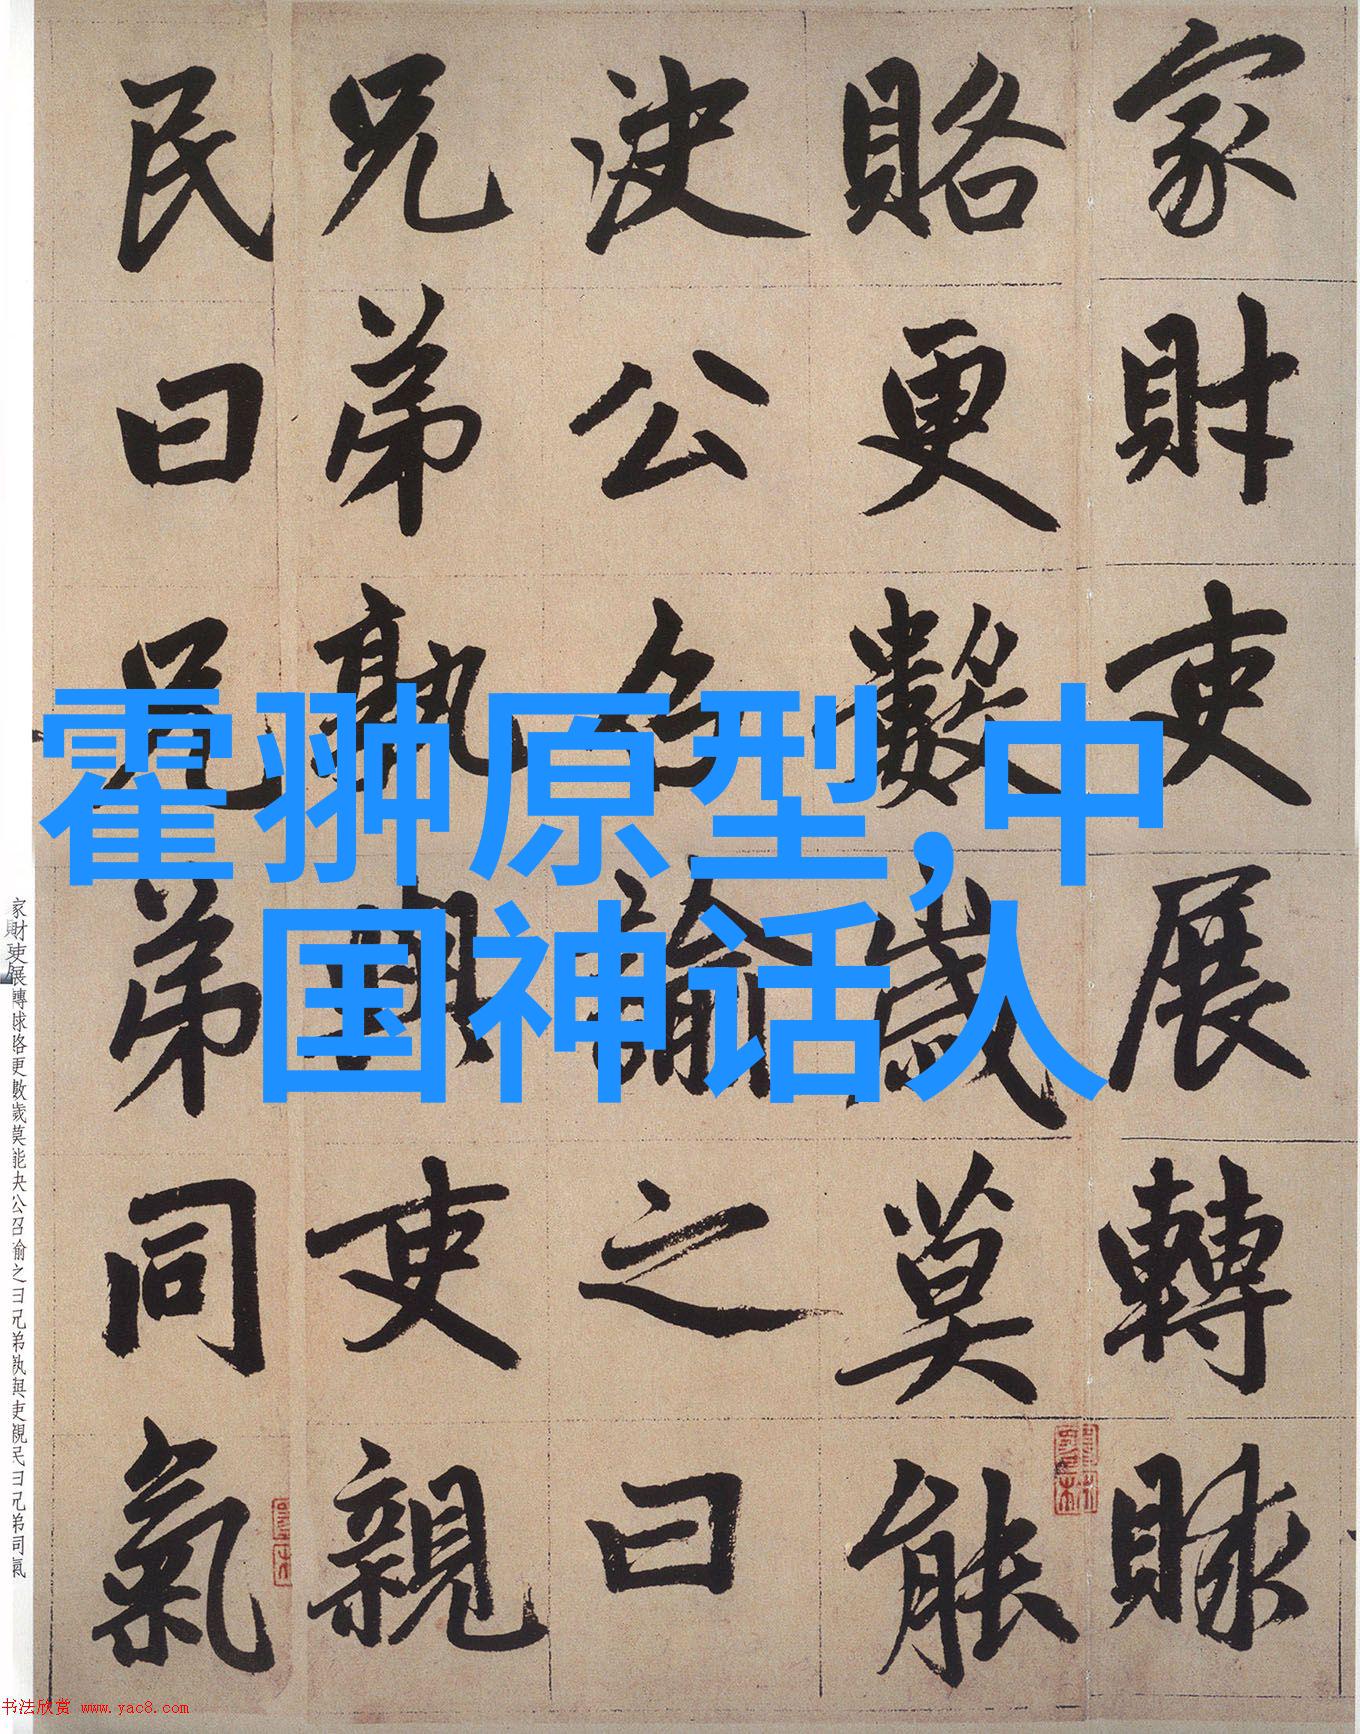 家財吏展轉賕
賂更數歲莫能
決公召諭之曰
兄弟孰與吏親
民曰兄弟同氣
霍翀原型,中
国神话人
家財吏展轉賕賂更數歲莫能決公召諭之曰兄弟孰與吏親民曰兄弟同氣
书法欣赏 www.yac8.com